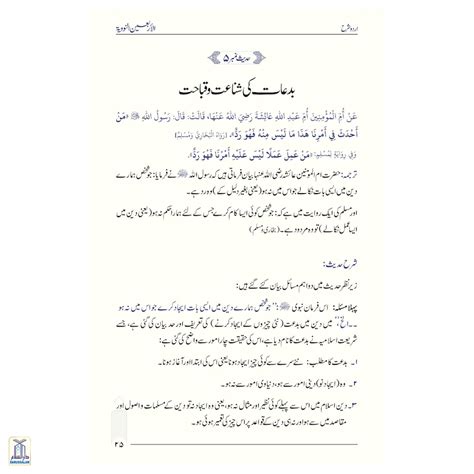 اردو شرح الاربعین النوویۃ
حدیث نمبر ۵
بدعات کی شناعت وقباحت
عَنْ أُمِّ الْمُؤْمِنِينَ أُمِّ عَبْدِ اللهِ عَائِشَةَ رَضِيَ اللهُ عَنْهَا، قَالَتْ: قَالَ: رَسُولُ اللهِ ﷺ «مَنْ
أَحْدَثَ فِي أَمْرِنَا هَذَا مَا لَيْسَ مِنْهُ فَهُوَ رَدٌّ»، (رَوَاهُ الْبُخَارِيُّ وَمُسْلِمٌ)
وَفِي رِوَايَةٍ لِمُسْلِمٍ: «مَنْ عَمِلَ عَمَلًا لَيْسَ عَلَيْهِ أَمْرُنَا فَهُوَ رَدٌّ».
ترجمہ: حضرت ام المؤمنین عائشہ رضی اللہ عنہا بیان فرماتی ہیں کہ رسول اللہ ﷺ نے فرمایا: جو شخص ہمارے
دین میں ایسی بات نکالے جو اس میں نہ ہو (یعنی بغیر دلیل کے) وہ رد ہے۔
اور مسلم کی ایک روایت میں ہے کہ: جو شخص کوئی ایسا کام کرے جس کے لئے ہمارا حکم نہ ہو (یعنی دین میں
ایسا عمل نکالے) تو وہ مردود ہے۔ (بخاری و مسلم)
شرح حدیث:
زیر نظر حدیث میں دو اہم مسائل بیان کئے گئے ہیں:
پہلا مسئلہ: اس فرمان نبوی ﷺ: "جو شخص ہمارے دین میں ایسی بات ایجاد کرے جو اس میں نہ ہو
۔۔ الخ"، میں دین میں بدعت (نئی چیزوں کے ایجاد ہونے) کی تعریف اور حد بیان کی گئی ہے، جسے
شریعت اسلامیہ نے بدعت کہا ہے، اس کی حقیقت چار امور سے واضح کی گئی ہے:
۱۔ بدعت کا مطلب: نئے سرے سے کوئی چیز ایجاد ہونا یعنی اس کی ابتدا اور آغاز ہونا۔
۲۔ وہ (ایجاد نو) دینی امور سے ہو، دنیاوی امور سے نہ ہو۔
۳۔ دین اسلام میں اس سے پہلے کوئی نظیر اور مثال نہ ہو، یعنی وہ ایجاد نہ تو دین کے مسلمات و اصول اور
مقاصد میں سے ہو اور نہ ہی دین کے قواعد پر اس چیز کی تعمیر ہوئی ہو۔
۲۵